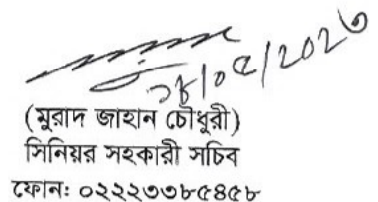 ২৮/০৫/২০২৩
(মুরাদ জাহান চৌধুরী)
সিনিয়র সহকারী সচিব
ফোনঃ ০২২২৩৩৮৫৪৫৮